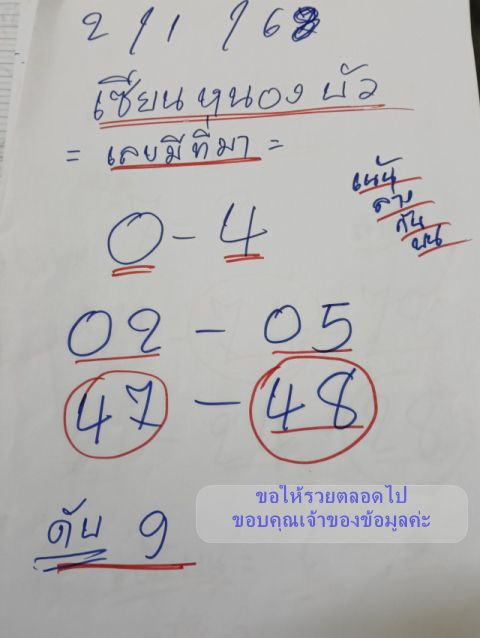 2/1/68
เซียนหนองบัว
= เลขมีที่มา =
เน้น
ล่าง
กัน
บน
0 - 4
02 - 05
47 - 48
ขอให้รวยตลอดไป
ขอบคุณเจ้าของข้อมูลค่ะ
ดับ 9